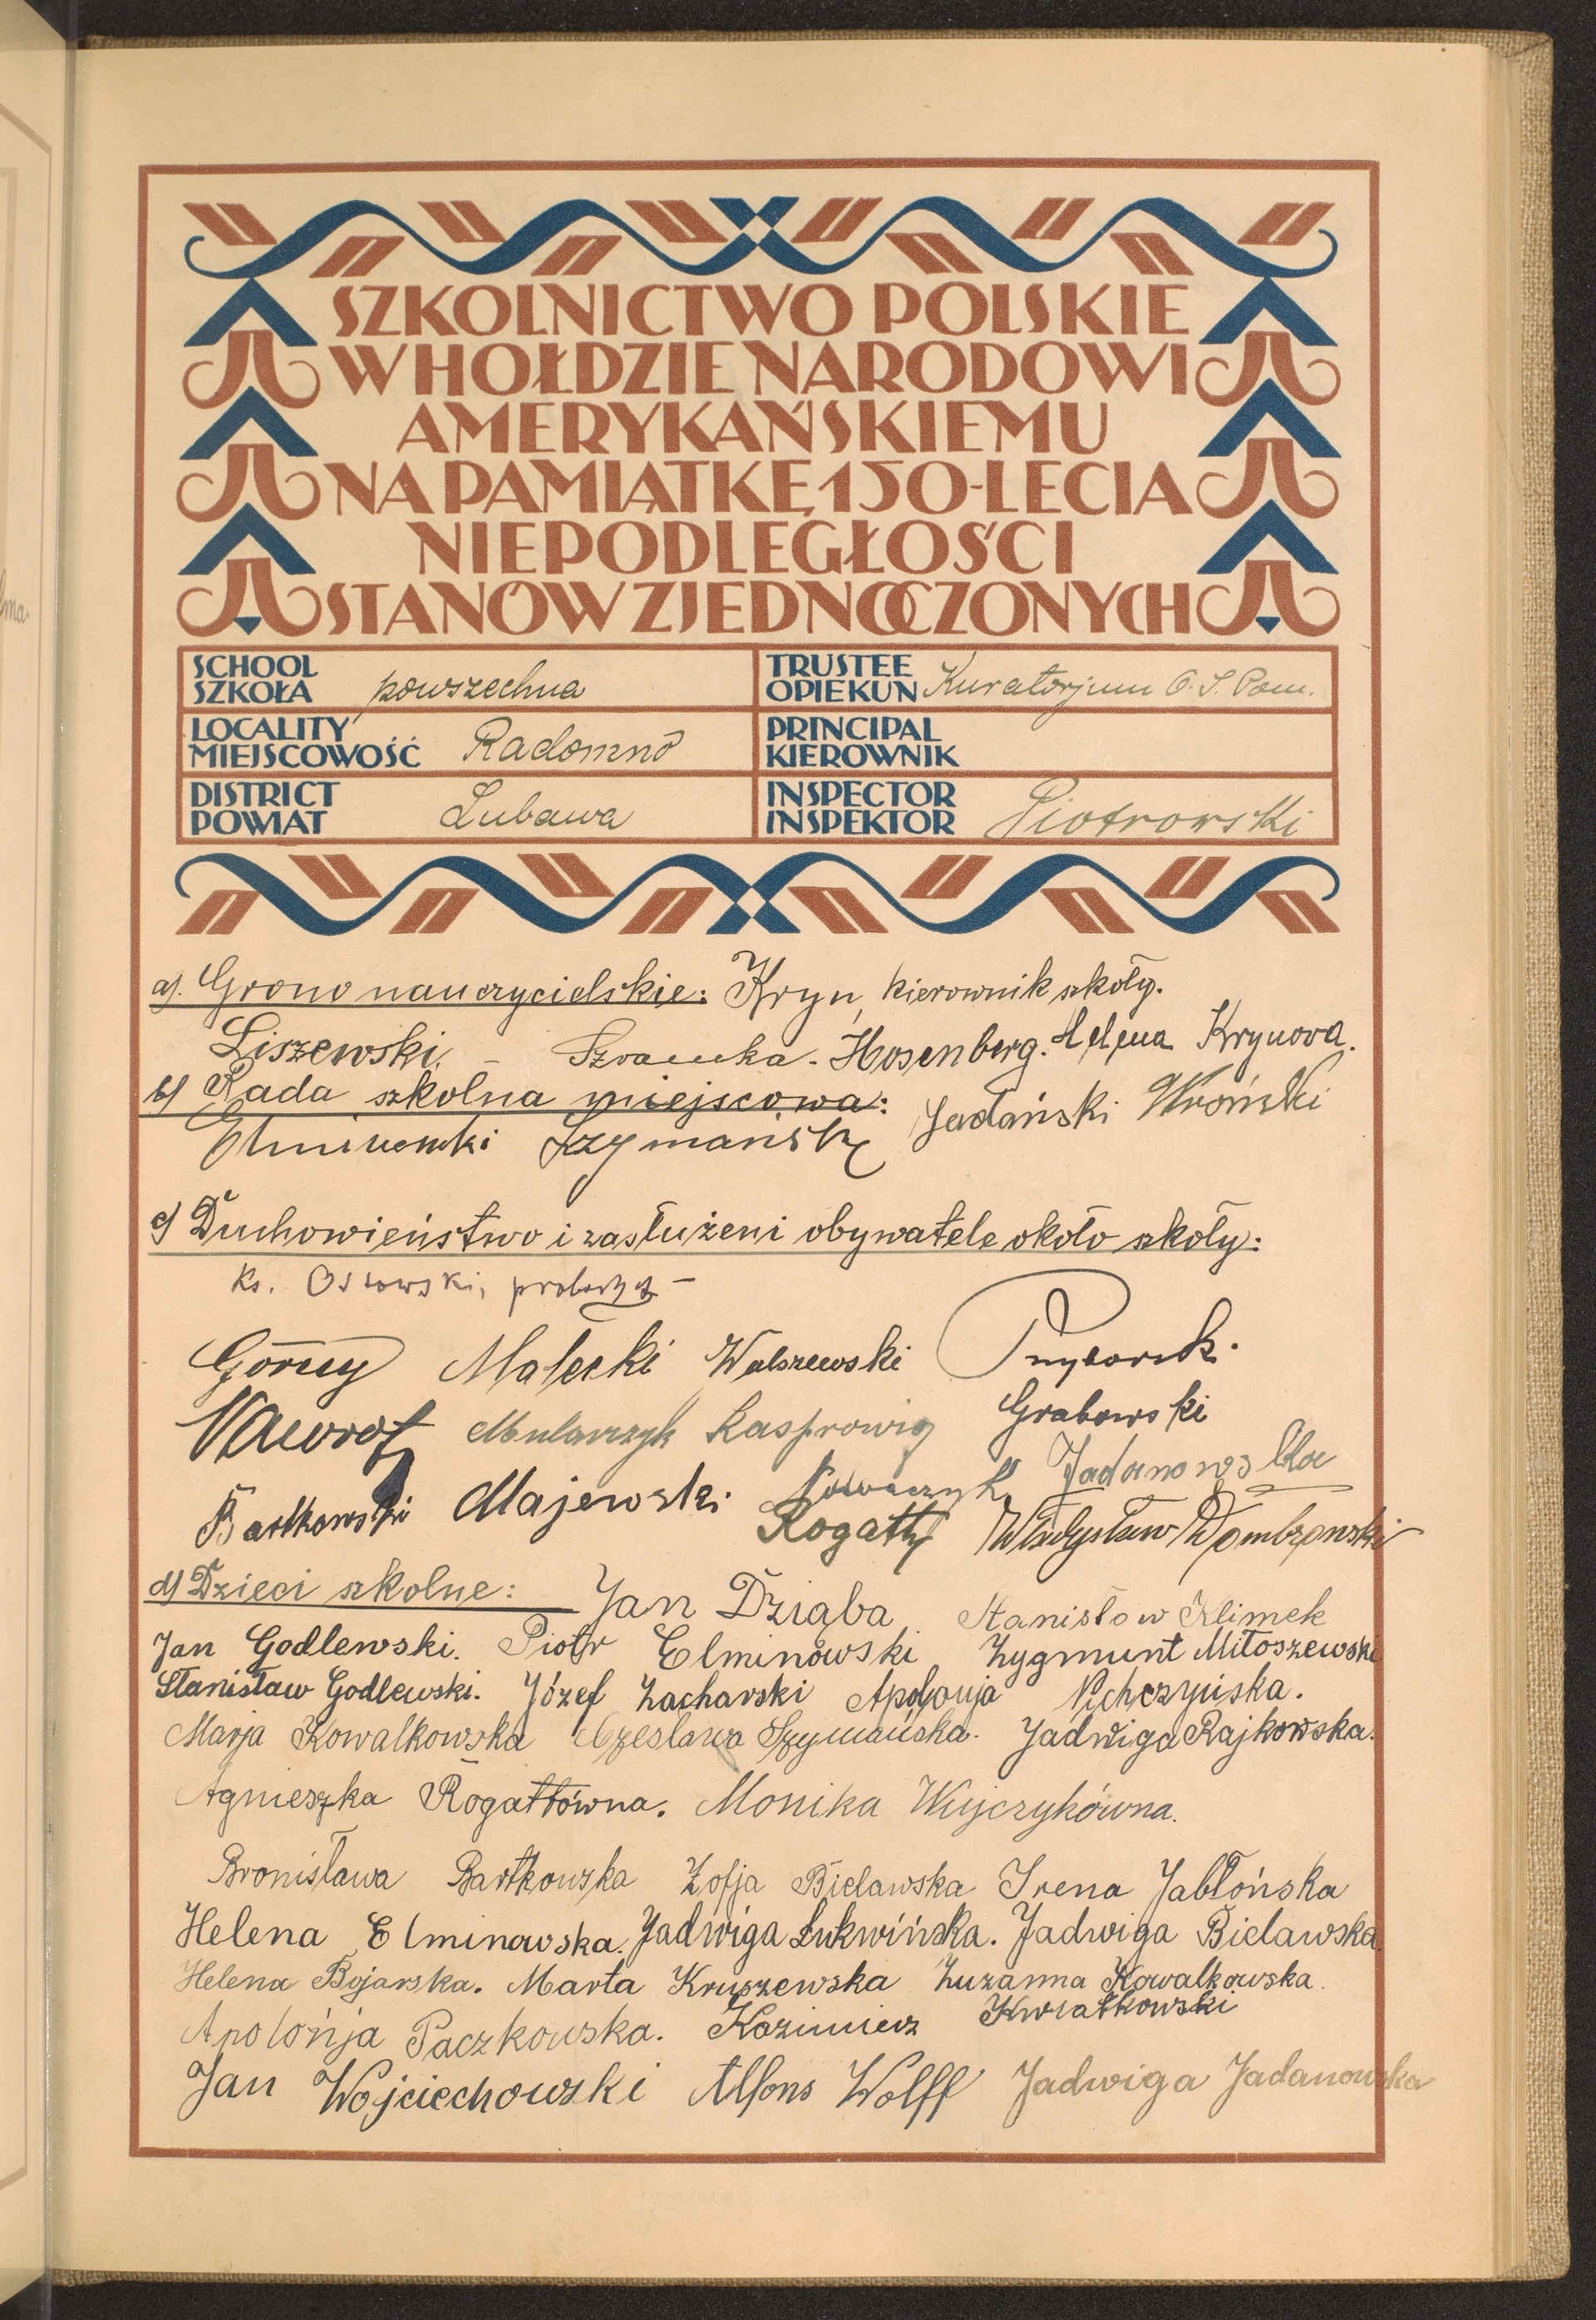 SZKOLNICTWO POLSKIE
W HOŁDZIE NARODOWI
AMERYKAŃSKIEMU
NA PAMIĄTKĘ 150-LECIA
NIEPODLEGŁOŚCI
STANÓW ZJEDNOCZONYCH
SCHOOL
SZKOŁA powszechna
TRUSTEE
OPIEKUN Kuratorjum O. S. Pom.
LOCALITY
MIEJSCOWOŚĆ Radomno
PRINCIPAL
KIEROWNIK
DISTRICT
POWIAT Lubawa
INSPECTOR
INSPEKTOR Piotrowski
a). Grono nauczycielskie: Kryn, kierownik szkoły.
Liszewski, - Hosenberg. Helena Krynova.
b) Rada szkolna miejscowa:
Szymański Jadański Wroński
c) Duchowieństwo i zasłużeni obywatele około szkoły:
Ks. Ossowski, proboszcz -
Górny Małecki Walszewski
Nawrot Mularczyk Kasprowicz Grabowski
Bartkowski Majewski Nowaczyk Jadanowska
Rogatty Władysław Dombrowski
d) Dzieci szkolne: Jan Dziąba Stanisław Klimek
Jan Godlewski. Piotr Elminowski Zygmunt Miłoszewski
Stanisław Godlewski. Józef Zacharski Apolonja Nichczyńska.
Marja Kowalkowska Czesława Szymańska. Jadwiga Rajkowska.
Agnieszka Rogattówna. Monika Wujczykówna.
Bronisława Bartkowska Zofja Bielawska Irena Jabłońska
Helena Elminowska. Jadwiga Łukwińska. Jadwiga Bielawska.
Helena Bojarska. Marta Kruszewska Zuzanna Kowalkowska.
Apolonja Paczkowska. Kazimierz Kwiatkowski
Jan Wojciechowski Alfons Wolff Jadwiga Jadanowska